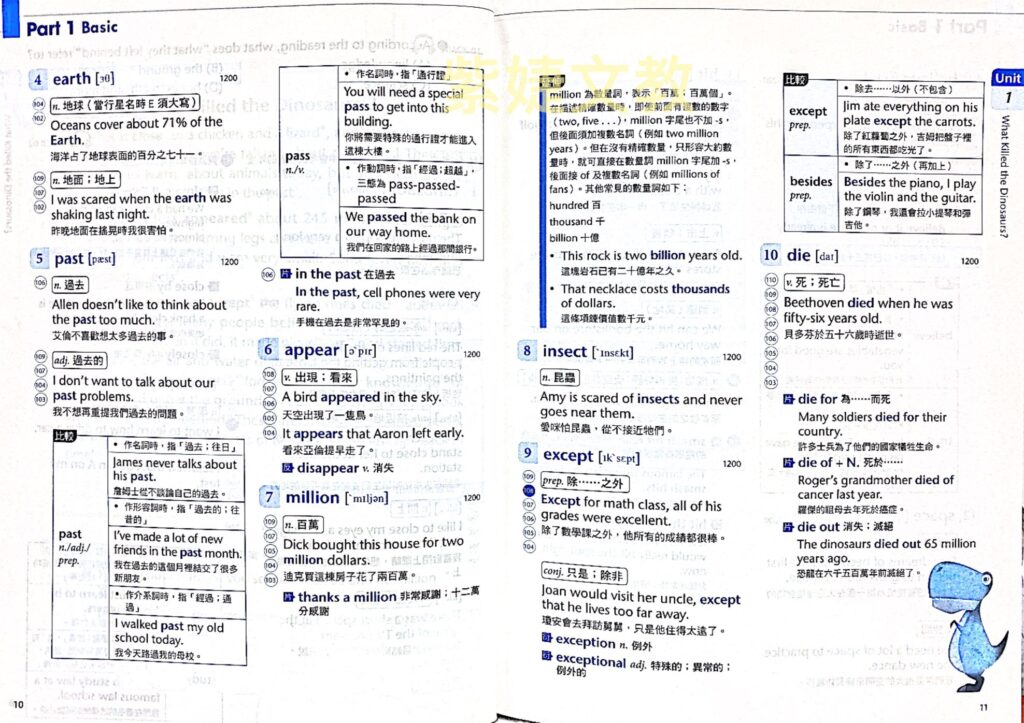 Part 1 Basic
4 earth [ɝθ] 1200
104
102
n. 地球（當行星名時 E 須大寫）
Oceans cover about 71% of the
Earth.
海洋占了地球表面的百分之七十一。
109
107
102
n. 地面；地上
I was scared when the earth was
shaking last night.
昨晚地面在搖晃時我很害怕。
5 past [pæst] 1200
106
n. 過去
Allen doesn't like to think about
the past too much.
艾倫不喜歡想太多過去的事。
109
107
104
103
adj. 過去的
I don't want to talk about our
past problems.
我不想再重提我們過去的問題。
比較
past
n./adj./
prep.
• 作名詞時，指「過去；往日」
James never talks about
his past.
詹姆士從不談論自己的過去。
• 作形容詞時，指「過去的；往
昔的」
I've made a lot of new
friends in the past month.
我在過去的這個月裡結交了很多
新朋友。
• 作介系詞時，指「經過；通
過」
I walked past my old
school today.
我今天路過我的母校。
10
pass
n./v.
• 作名詞時，指「通行證」
You will need a special
pass to get into this
building.
你將需要特殊的通行證才能進入
這棟大樓。
• 作動詞時，指「經過；超越」，
三態為 pass-passed-
passed
We passed the bank on
our way home.
我們在回家的路上經過那間銀行。
106
in the past 在過去
In the past, cell phones were very
rare.
手機在過去是非常罕見的。
6 appear [əˋpɪr] 1200
108
107
106
105
104
v. 出現；看來
A bird appeared in the sky.
天空出現了一隻鳥。
It appears that Aaron left early.
看來亞倫提早走了。
反 disappear v. 消失
7 million [ˋmɪljən] 1200
109
105
104
103
n. 百萬
Dick bought this house for two
million dollars.
迪克買這棟房子花了兩百萬。
thanks a million 非常感謝；十二萬
分感謝
紫婕文教
million 為數量詞，表示「百萬；百萬個」。
在描述精確數量時，即使前面有複數的數字
（two, five . . .），million 字尾也不加 -s，
但後面須加複數名詞（例如 two million
years）。但在沒有精確數量，只形容大約數
量時，就可直接在數量詞 million 字尾加 -s，
後面接 of 及複數名詞（例如 millions of
fans）。其他常見的數量詞如下：
hundred 百
thousand 千
billion 十億
• This rock is two billion years old.
這塊岩石已有二十億年之久。
• That necklace costs thousands
of dollars.
這條項鍊價值數千元。
8 insect [ˋɪnsɛkt] 1200
n. 昆蟲
Amy is scared of insects and never
goes near them.
愛咪怕昆蟲，從不接近牠們。
9 except [ɪkˋsɛpt] 1200
109
108
107
105
104
prep. 除……之外
Except for math class, all of his
grades were excellent.
除了數學課之外，他所有的成績都很棒。
conj. 只是；除非
Joan would visit her uncle, except
that he lives too far away.
瓊安會去拜訪舅舅，只是他住得太遠了。
exception n. 例外
exceptional adj. 特殊的；異常的；
例外的
比較
except
prep.
• 除去……以外（不包含）
Jim ate everything on his
plate except the carrots.
除了紅蘿蔔之外，吉姆把盤子裡
的所有東西都吃光了。
besides
prep.
• 除了……之外（再加上）
Besides the piano, I play
the violin and the guitar.
除了鋼琴，我還會拉小提琴和彈
吉他。
10 die [daɪ] 1200
110
109
108
106
105
104
103
v. 死；死亡
Beethoven died when he was
fifty-six years old.
貝多芬於五十六歲時逝世。
die for 為……而死
Many soldiers died for their
country.
許多士兵為了他們的國家犧牲生命。
die of + N. 死於……
Roger's grandmother died of
cancer last year.
羅傑的祖母去年死於癌症。
die out 消失；滅絕
The dinosaurs died out 65 million
years ago.
恐龍在六千五百萬年前滅絕了。
Unit
1
What Killed the Dinosaurs?
11